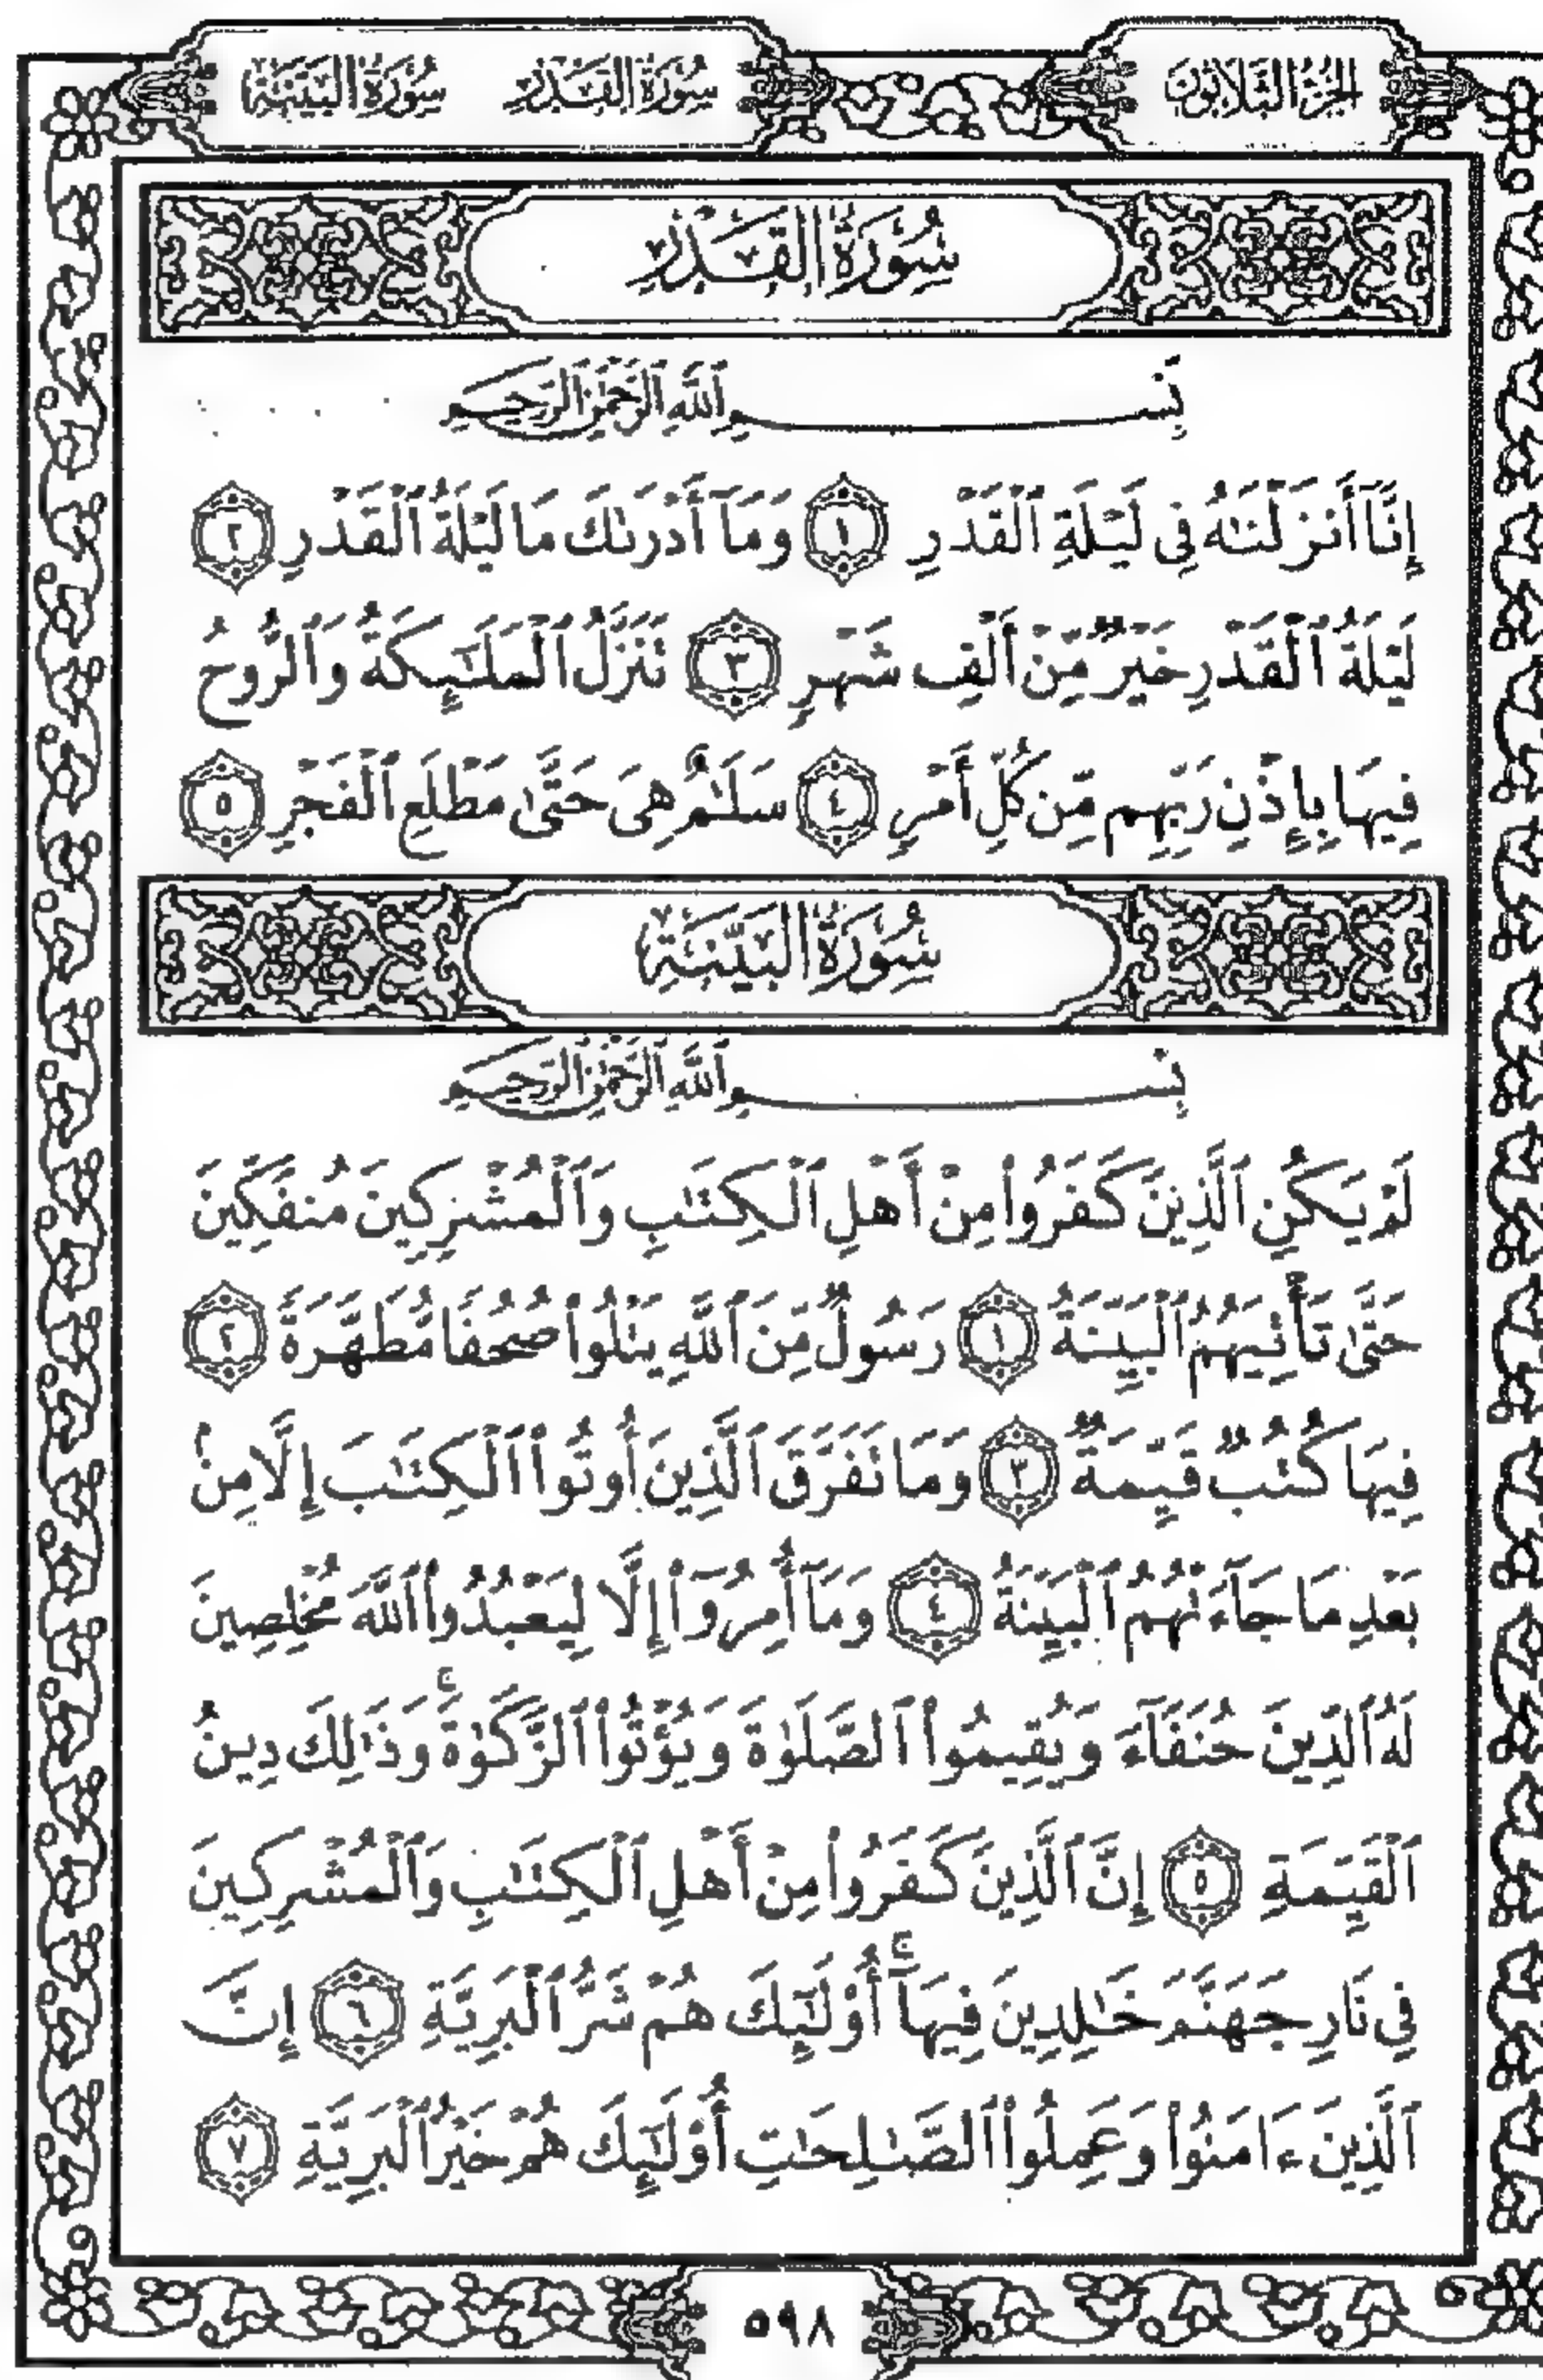 الجزء الثلاثون
سورة القدر سورة البينة
سُورَةُ القَدْرِ
بِسْمِ ٱللَّهِ ٱلرَّحْمَٰنِ ٱلرَّحِيمِ
إِنَّآ أَنزَلْنَٰهُ فِى لَيْلَةِ ٱلْقَدْرِ ١ وَمَآ أَدْرَىٰكَ مَا لَيْلَةُ ٱلْقَدْرِ ٢
لَيْلَةُ ٱلْقَدْرِ خَيْرٌ مِّنْ أَلْفِ شَهْرٍ ٣ تَنَزَّلُ ٱلْمَلَٰٓئِكَةُ وَٱلرُّوحُ
فِيهَا بِإِذْنِ رَبِّهِم مِّن كُلِّ أَمْرٍ ٤ سَلَٰمٌ هِىَ حَتَّىٰ مَطْلَعِ ٱلْفَجْرِ ٥
سُورَةُ البَيِّنَةِ
بِسْمِ ٱللَّهِ ٱلرَّحْمَٰنِ ٱلرَّحِيمِ
لَمْ يَكُنِ ٱلَّذِينَ كَفَرُوا۟ مِنْ أَهْلِ ٱلْكِتَٰبِ وَٱلْمُشْرِكِينَ مُنفَكِّينَ
حَتَّىٰ تَأْتِيَهُمُ ٱلْبَيِّنَةُ ١ رَسُولٌ مِّنَ ٱللَّهِ يَتْلُوا۟ صُحُفًا مُّطَهَّرَةً ٢
فِيهَا كُتُبٌ قَيِّمَةٌ ٣ وَمَا تَفَرَّقَ ٱلَّذِينَ أُوتُوا۟ ٱلْكِتَٰبَ إِلَّا مِنۢ
بَعْدِ مَا جَآءَتْهُمُ ٱلْبَيِّنَةُ ٤ وَمَآ أُمِرُوٓا۟ إِلَّا لِيَعْبُدُوا۟ ٱللَّهَ مُخْلِصِينَ
لَهُ ٱلدِّينَ حُنَفَآءَ وَيُقِيمُوا۟ ٱلصَّلَوٰةَ وَيُؤْتُوا۟ ٱلزَّكَوٰةَ ۚ وَذَٰلِكَ دِينُ
ٱلْقَيِّمَةِ ٥ إِنَّ ٱلَّذِينَ كَفَرُوا۟ مِنْ أَهْلِ ٱلْكِتَٰبِ وَٱلْمُشْرِكِينَ
فِى نَارِ جَهَنَّمَ خَٰلِدِينَ فِيهَآ ۚ أُو۟لَٰٓئِكَ هُمْ شَرُّ ٱلْبَرِيَّةِ ٦ إِنَّ
ٱلَّذِينَ ءَامَنُوا۟ وَعَمِلُوا۟ ٱلصَّٰلِحَٰتِ أُو۟لَٰٓئِكَ هُمْ خَيْرُ ٱلْبَرِيَّةِ ٧
٥٩٨